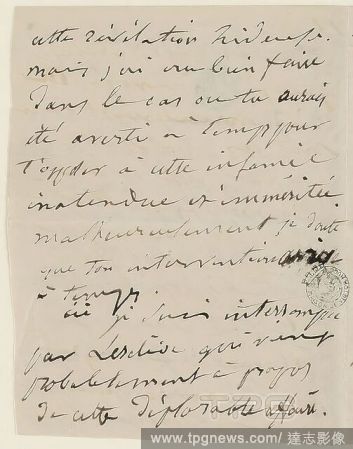 cette révélation hideuse.
mais j'ai cru bien faire
Dans le cas ou tu aurais
été averti à temps pour
t'opposer à cette infamie
inatendue et imméritée
malheureusement je doute
que ton intervention arrive
à temps.
je suis interrompue
par Lesclide qui vient
probablement à propos
de cette déplorable affaire.
www.tpgnews.com／達志影像